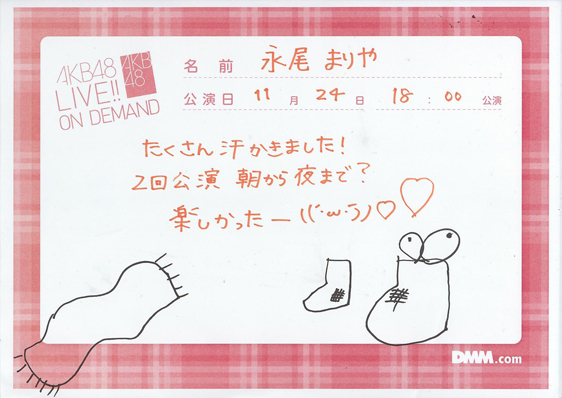 AKB48
LIVE!!
ON DEMAND
AKB
48
名前 永尾まりや
公演日 11月24日 18:00 公演
たくさん汗かきました!
2回公演 朝から夜まで?
楽しかったー\(('·ω·`)ノ♡♡
華 華
DMM.com